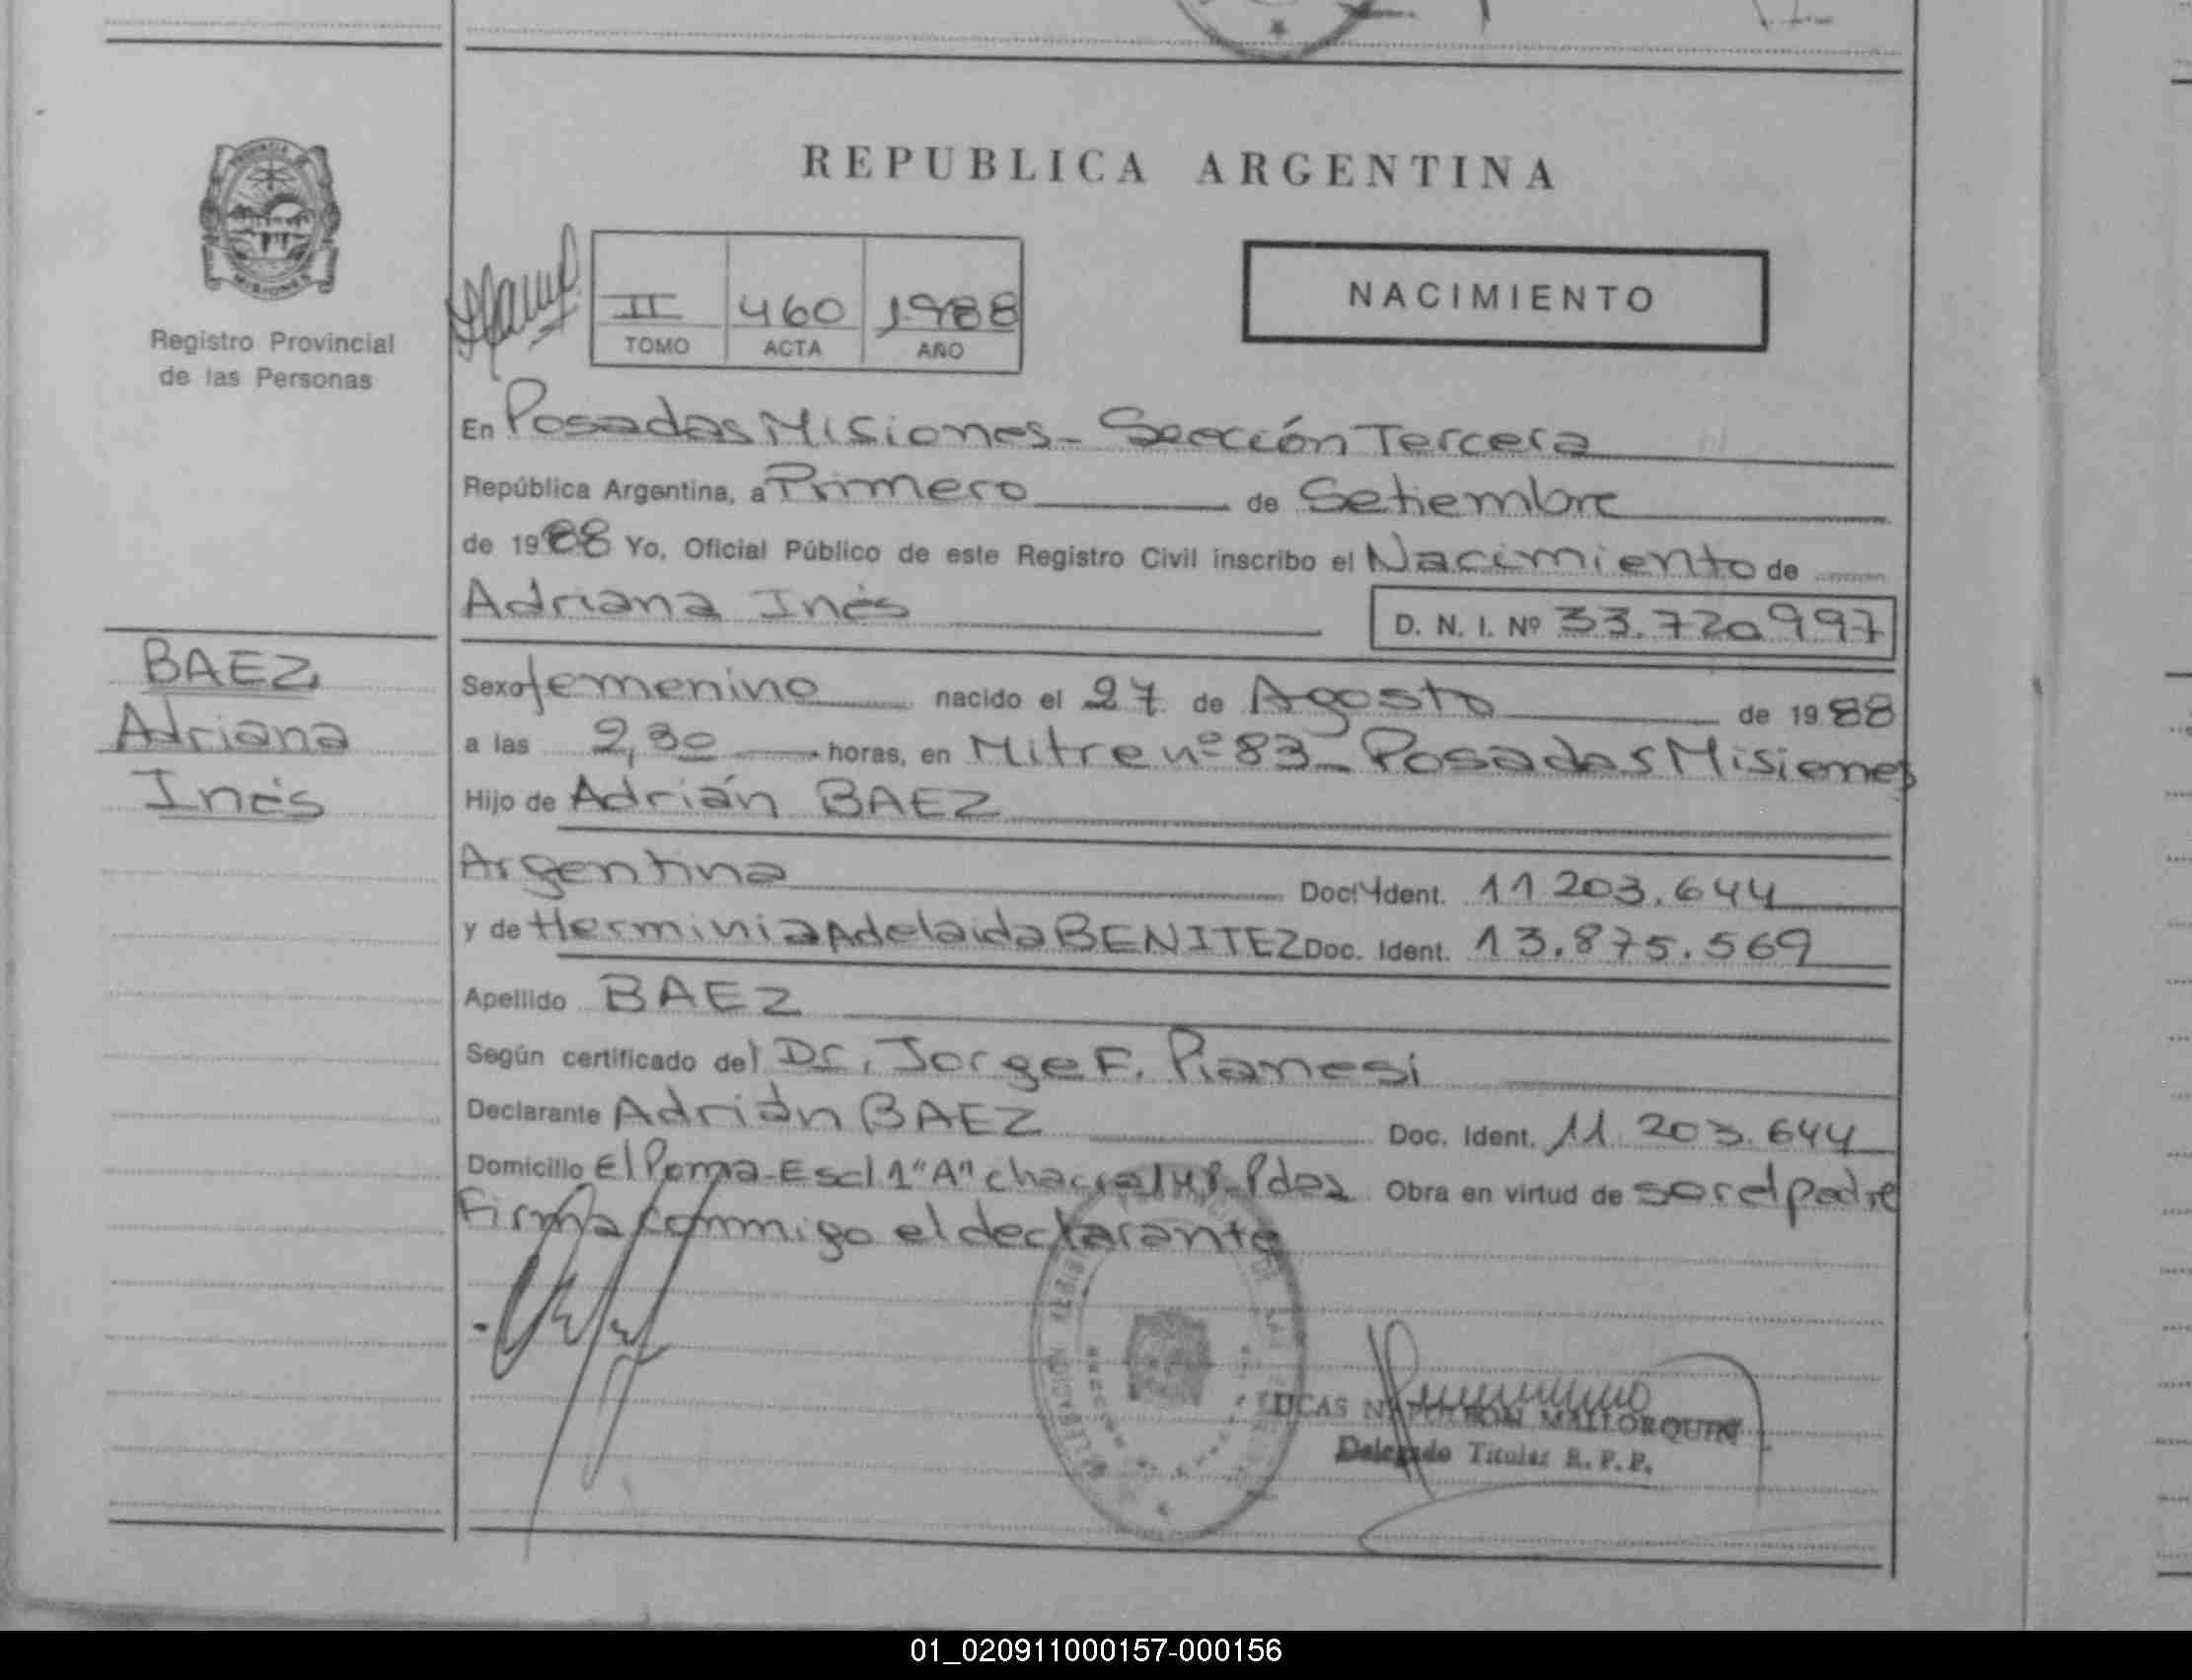 REPUBLICA ARGENTINA
PROVINCIA DE
MISIONES
Registro Provincial
de las Personas
II 460 1988
TOMO ACTA AÑO
NACIMIENTO
En Posadas Misiones - Sección Tercera
República Argentina, a Primero de Setiembre
de 1988 Yo, Oficial Público de este Registro Civil inscribo el Nacimiento de
Adriana Inés D. N. I. Nº 33.720997
BAEZ,
Adriana
Inés
Sexo femenino nacido el 27 de Agosto de 1988
a las 2,30 horas, en Mitre nº 83 - Posadas Misiones
Hijo de Adrián BAEZ
Argentina Doc. Ident. 11 203.644
y de Herminia Adelaida BENITEZ Doc. Ident. 13.875.569
Apellido BAEZ
Según certificado del Dr. Jorge F. Pianesi
Declarante Adrián BAEZ Doc. Ident. 11 203.644
Domicilio El Poma - Escl 1 "A" chacra Pdas Obra en virtud de sor el padre
Firma conmigo el declarante
LUCAS NAPOLEON MALLORQUIN
Delegado Titular R. P. P.
01_020911000157-000156